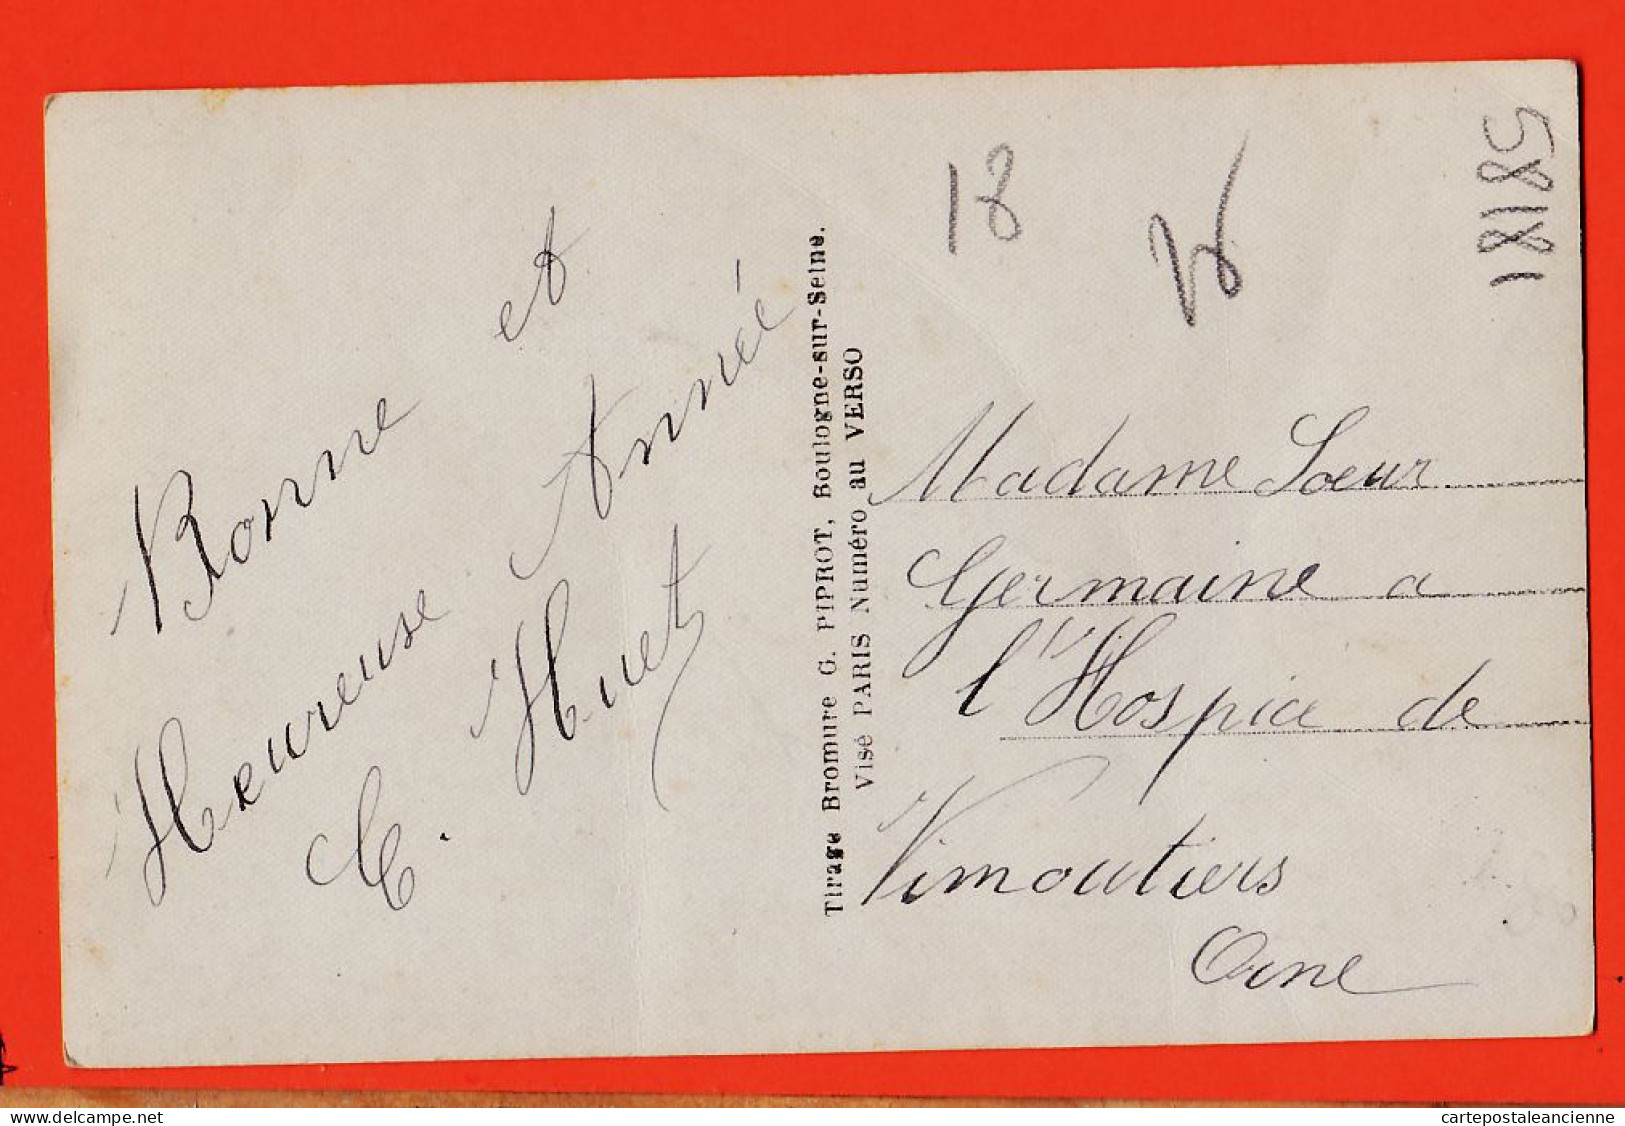 Bonne et
Heureuse Année
C. Huet
Tirage Bromure G. PIPROT, Boulogne-sur-Seine.
Visé PARIS Numéro au VERSO
18
58181
Madame Soeur
Germaine a
l'Hospice de
Vimoutiers
Orne
delcampe.net
cartepostaleancienne